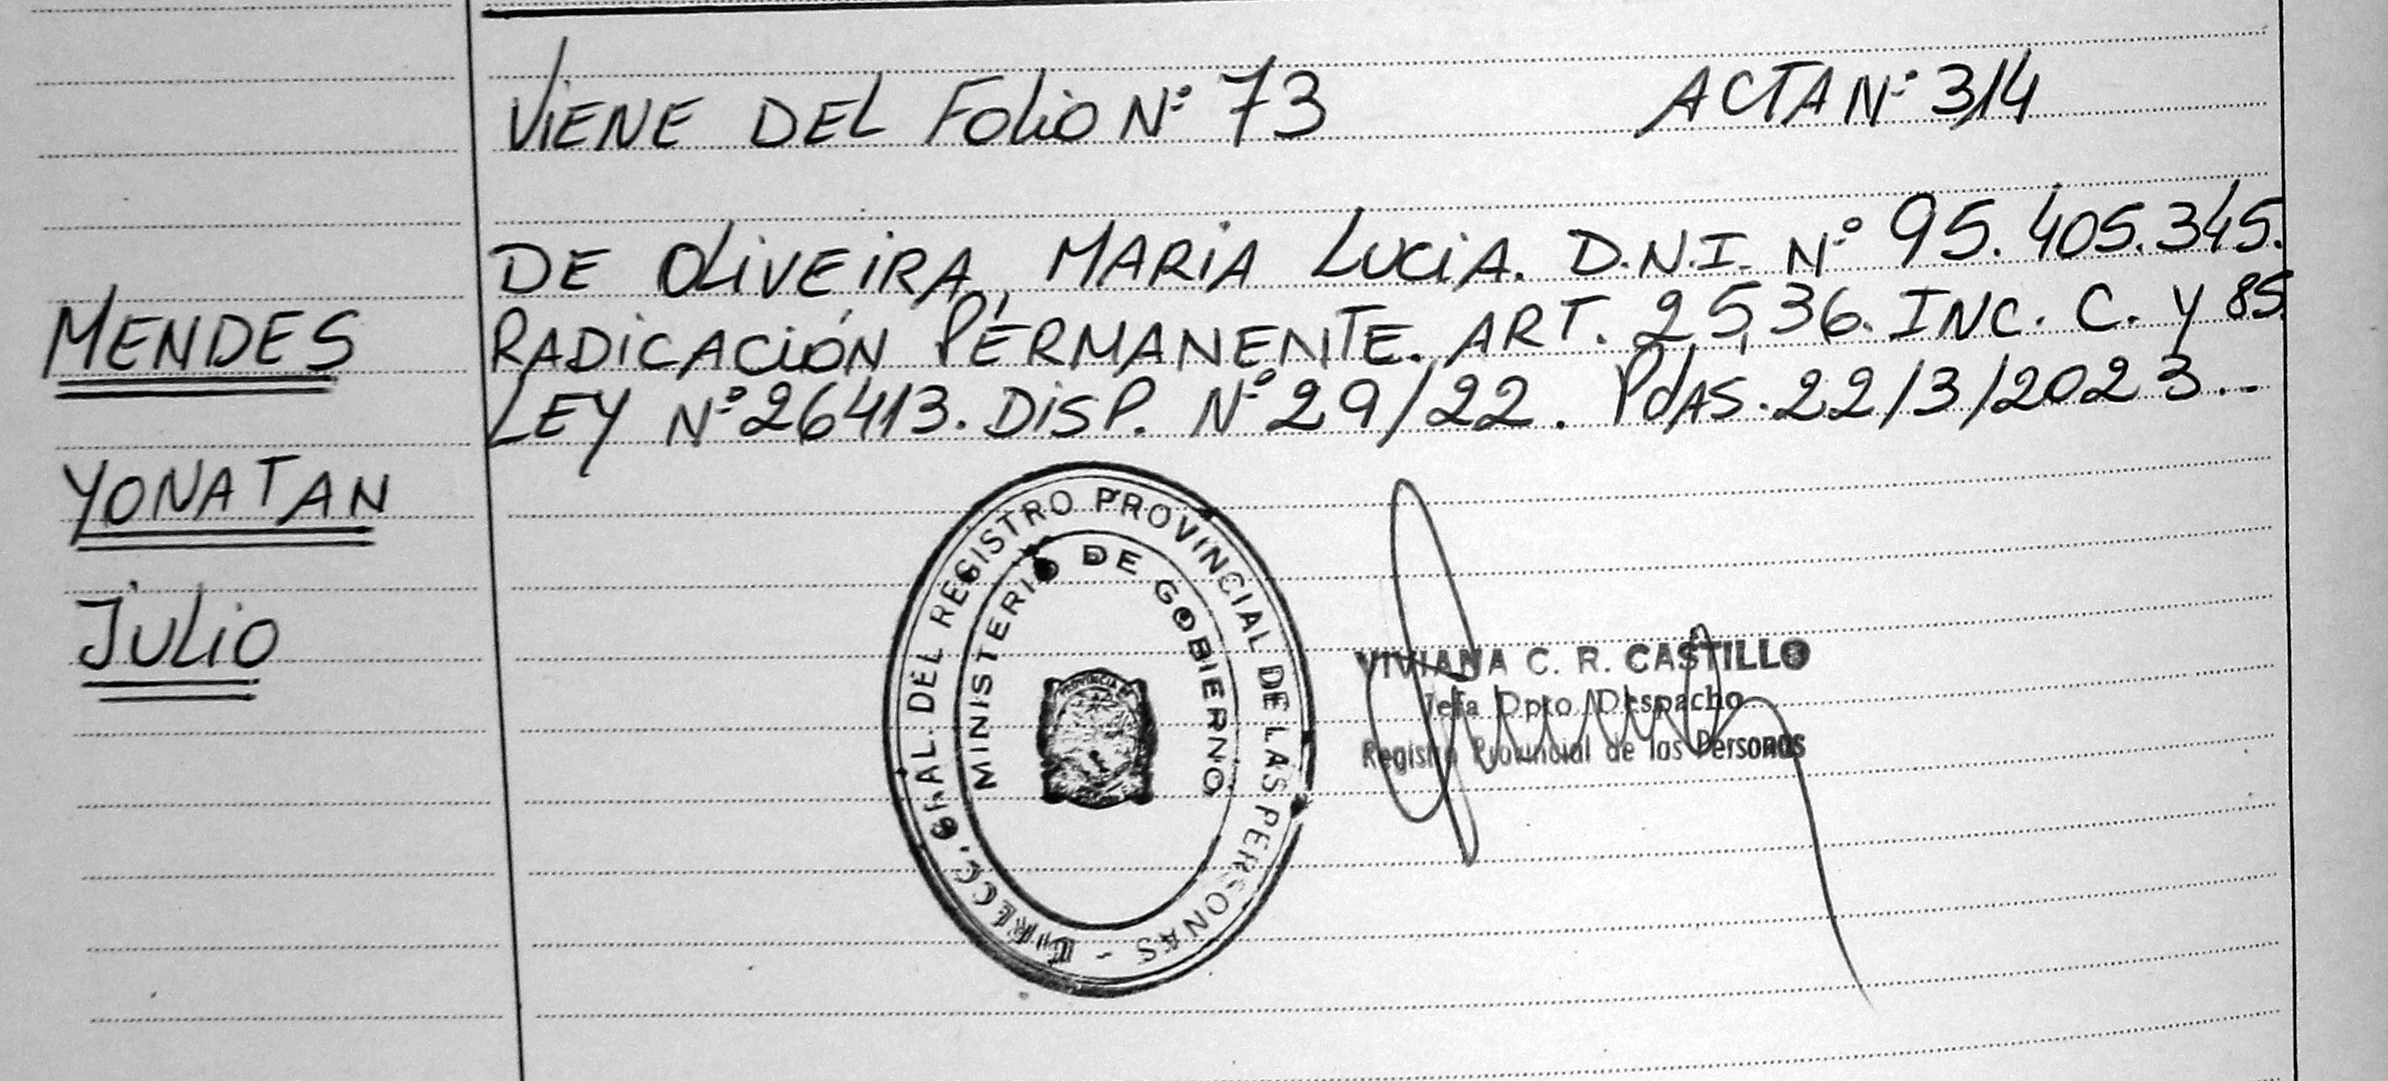 VIENE DEL FOLIO Nº 73 ACTA Nº 314
DE OLIVEIRA, MARIA LUCIA. D.N.I. Nº 95.405.345.
RADICACIÓN PERMANENTE. ART. 25,36. INC. C. Y 85
LEY Nº 26413. DISP. Nº 29/22. PdAS. 22/3/2023..
MENDES
YONATAN
JULIO
DIRECC. GRAL. DEL REGISTRO PROVINCIAL DE LAS PERSONAS -
MINISTERIO DE GOBIERNO
PROVINCIA DE
VIVIANA C. R. CASTILLO
Jefa Dpto Despacho
Registro Provincial de las Personas